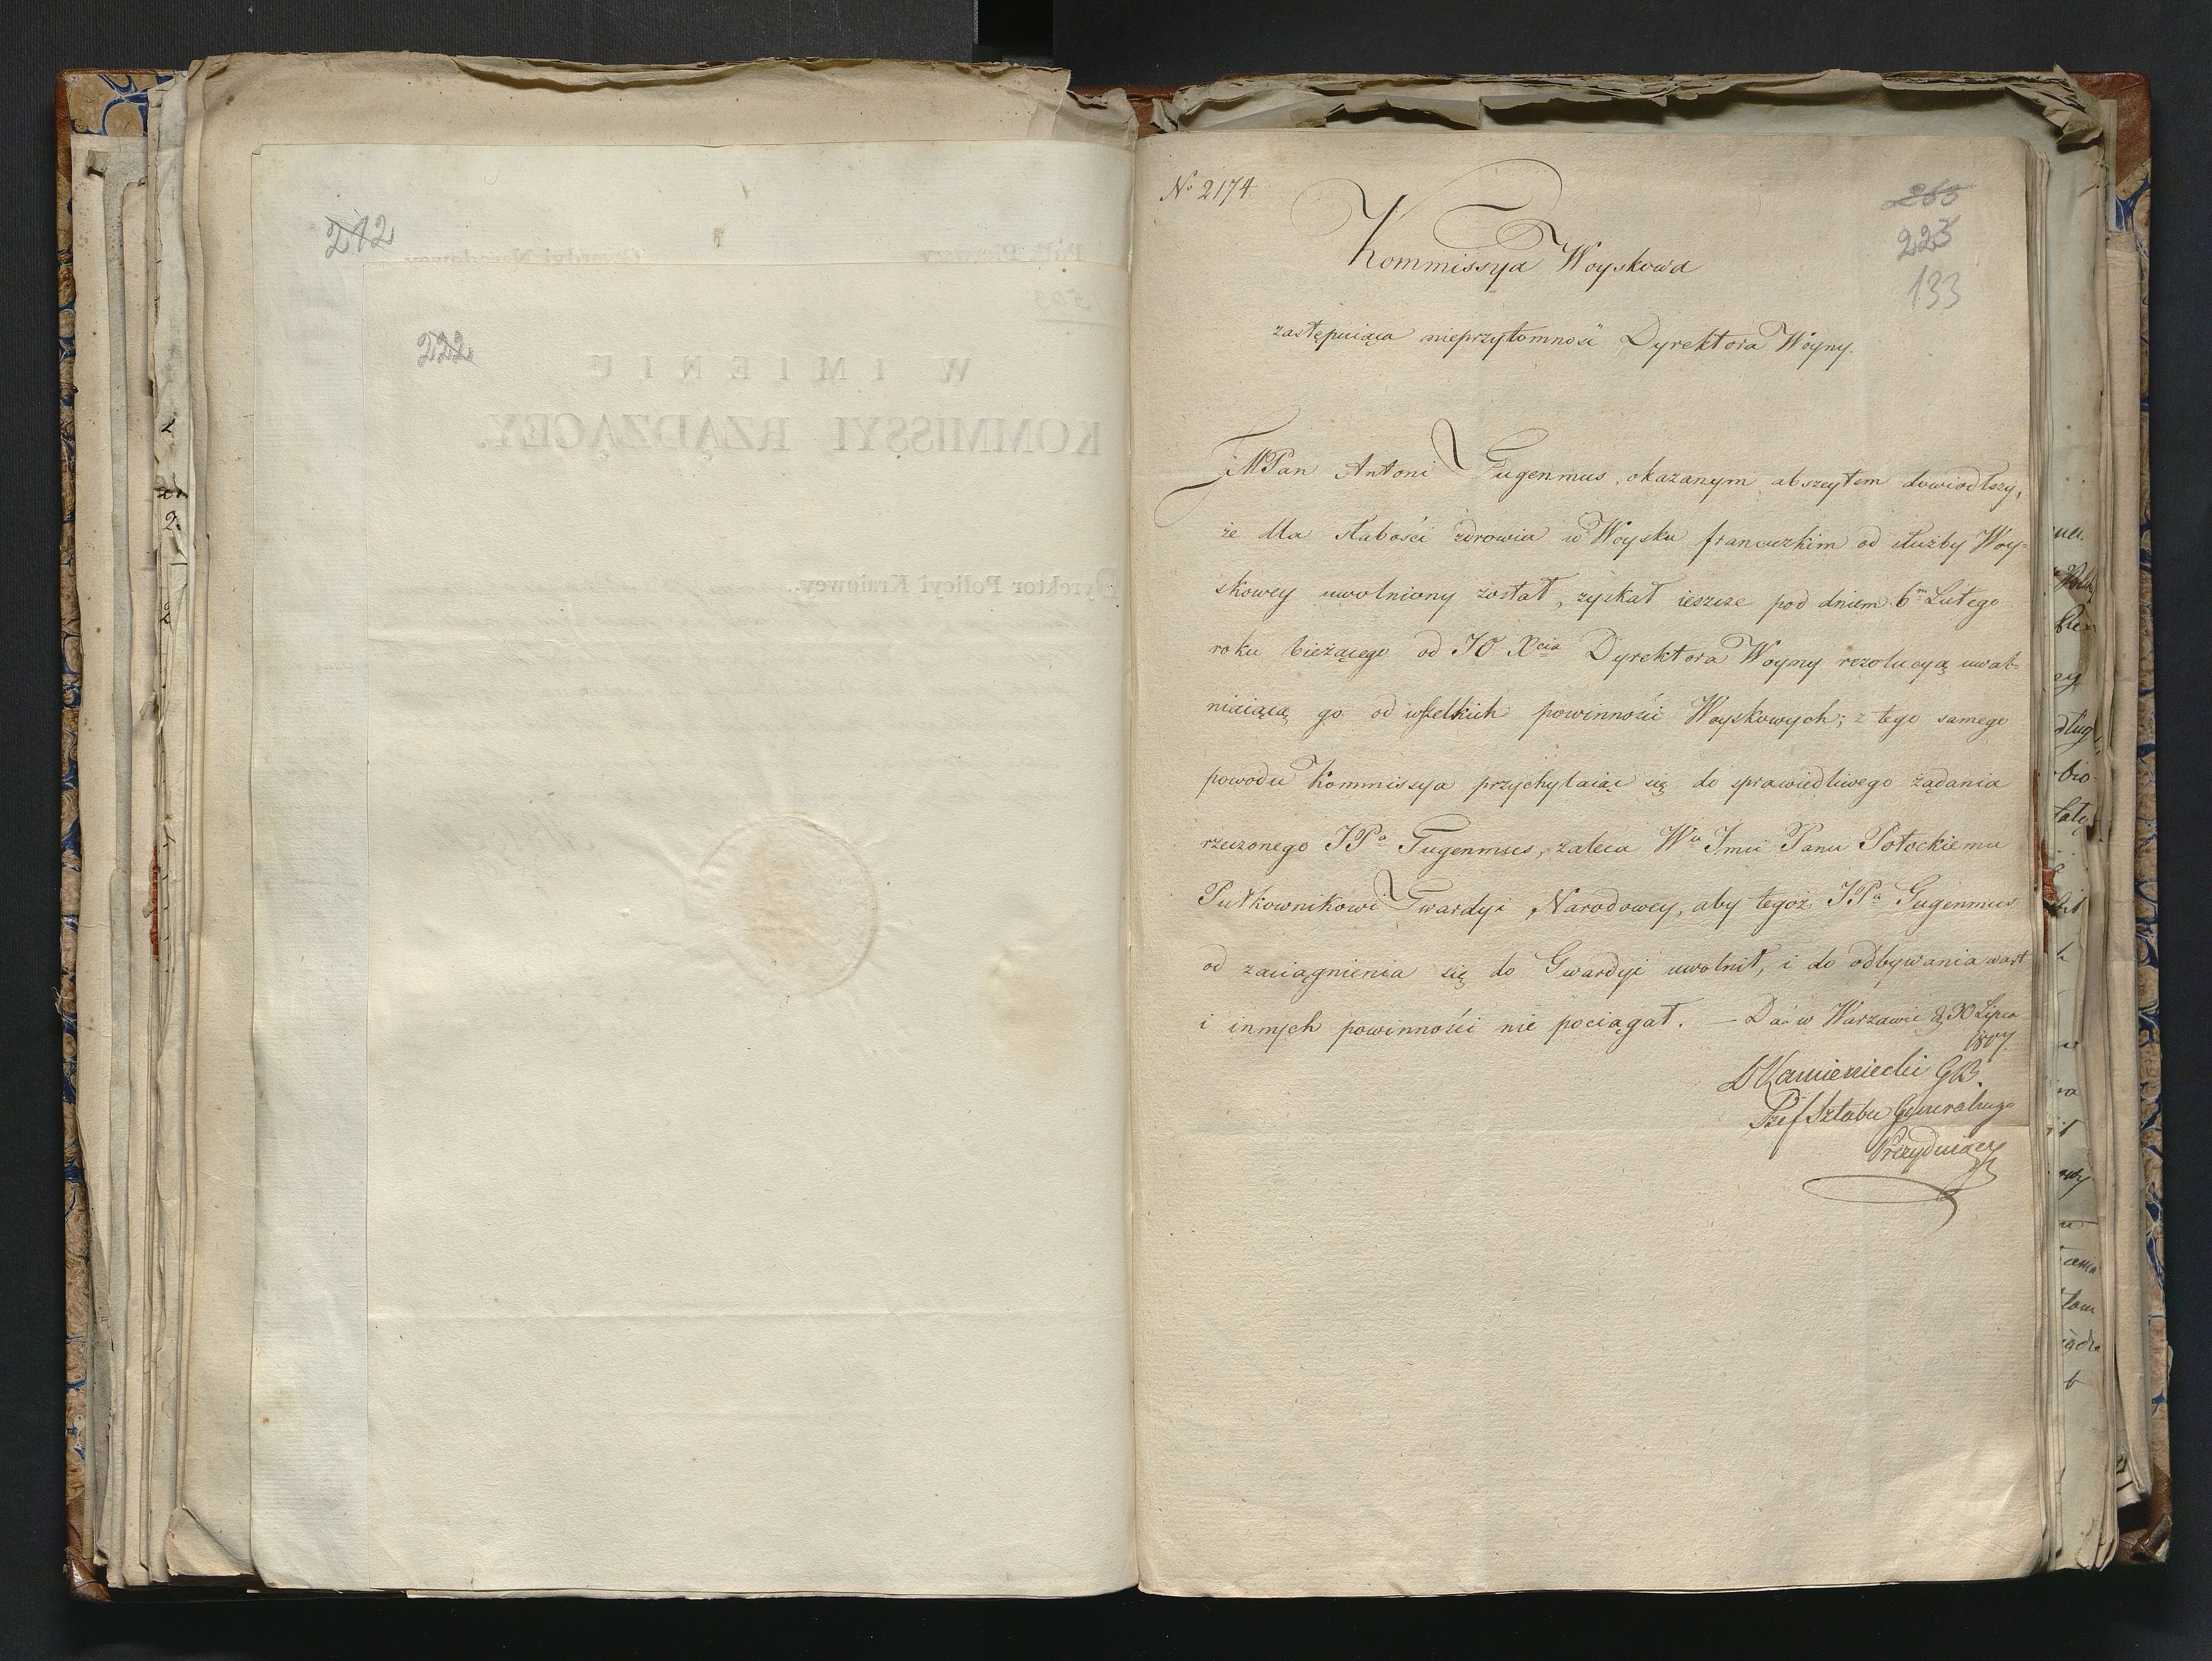 212
222
W IMIENIU
KOMMISSYI RZĄDZĄCEY.
Dyrektor Policyi Kraiowey.
No 2174.
260
223
133
Kommissya Woyskowa
zastępuiąca nieprzytomność Dyrektora Woyny.
JMPan Antoni Gugenmus, okazanym abszeytem dowiodłszy,
że dla słabości zdrowia w Woysku francuzkim od służby Woy-
skowey uwolniony został, zyskał ieszcze pod dniem 6m Lutego
roku bieżącego od JO Xcia Dyrektora Woyny rezolucyą uwal-
niaiącą go od wszelkich powinności Woyskowych; z tego samego
powodu Kommissya przychylaiąc się do sprawiedliwego żądania
rzeczonego JPa Gugenmus, zaleca Wu Jmci Panu Potockiemu
Pułkownikowi Gwardyi Narodowey, aby tegoż JPa Gugenmus
od zaciągnienia się do Gwardyi uwolnił, i do odbywania wart
i innych powinności nie pociągał. — Dań w Warzawie d, 30 Lipca
1807
L Kamieniecki GB.
Szef Sztabu Generalnego
Prezyduiący